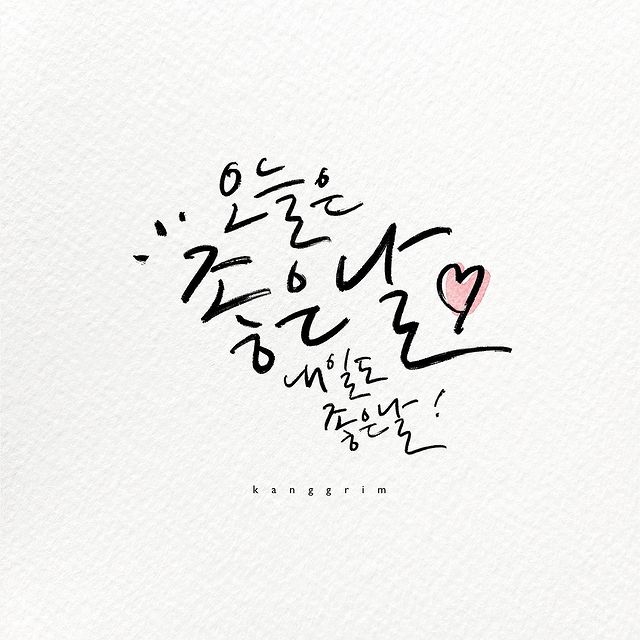 오늘은
좋은날
내일도
좋은날!
kanggrim